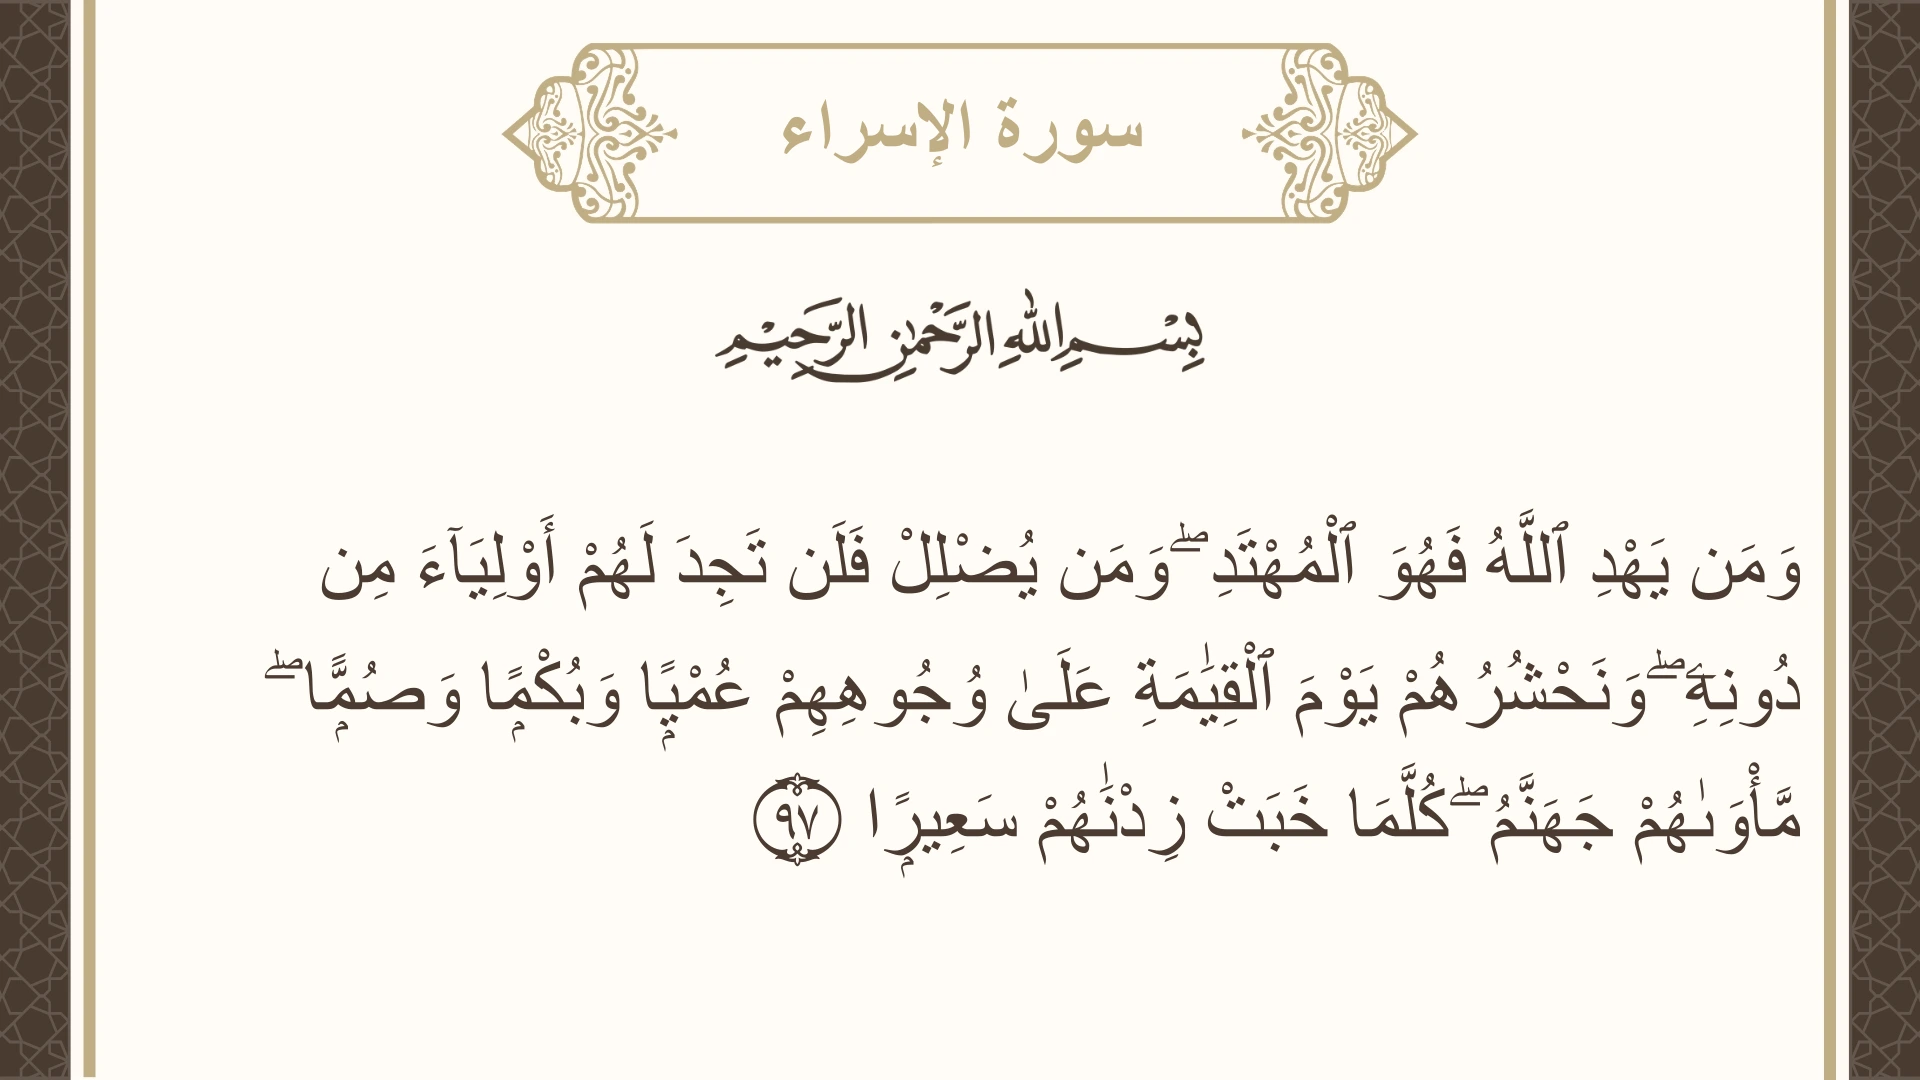 سورة الإسراء
بِسْمِ اللهِ الرَّحْمٰنِ الرَّحِيْمِ
وَمَن يَهْدِ ٱللَّهُ فَهُوَ ٱلْمُهْتَدِ ۖ وَمَن يُضْلِلْ فَلَن تَجِدَ لَهُمْ أَوْلِيَآءَ مِن
دُونِهِۦ ۖ وَنَحْشُرُهُمْ يَوْمَ ٱلْقِيَٰمَةِ عَلَىٰ وُجُوهِهِمْ عُمْيًۭا وَبُكْمًۭا وَصُمًّۭا ۖ
مَّأْوَىٰهُمْ جَهَنَّمُ ۖ كُلَّمَا خَبَتْ زِدْنَٰهُمْ سَعِيرًۭا ٩٧